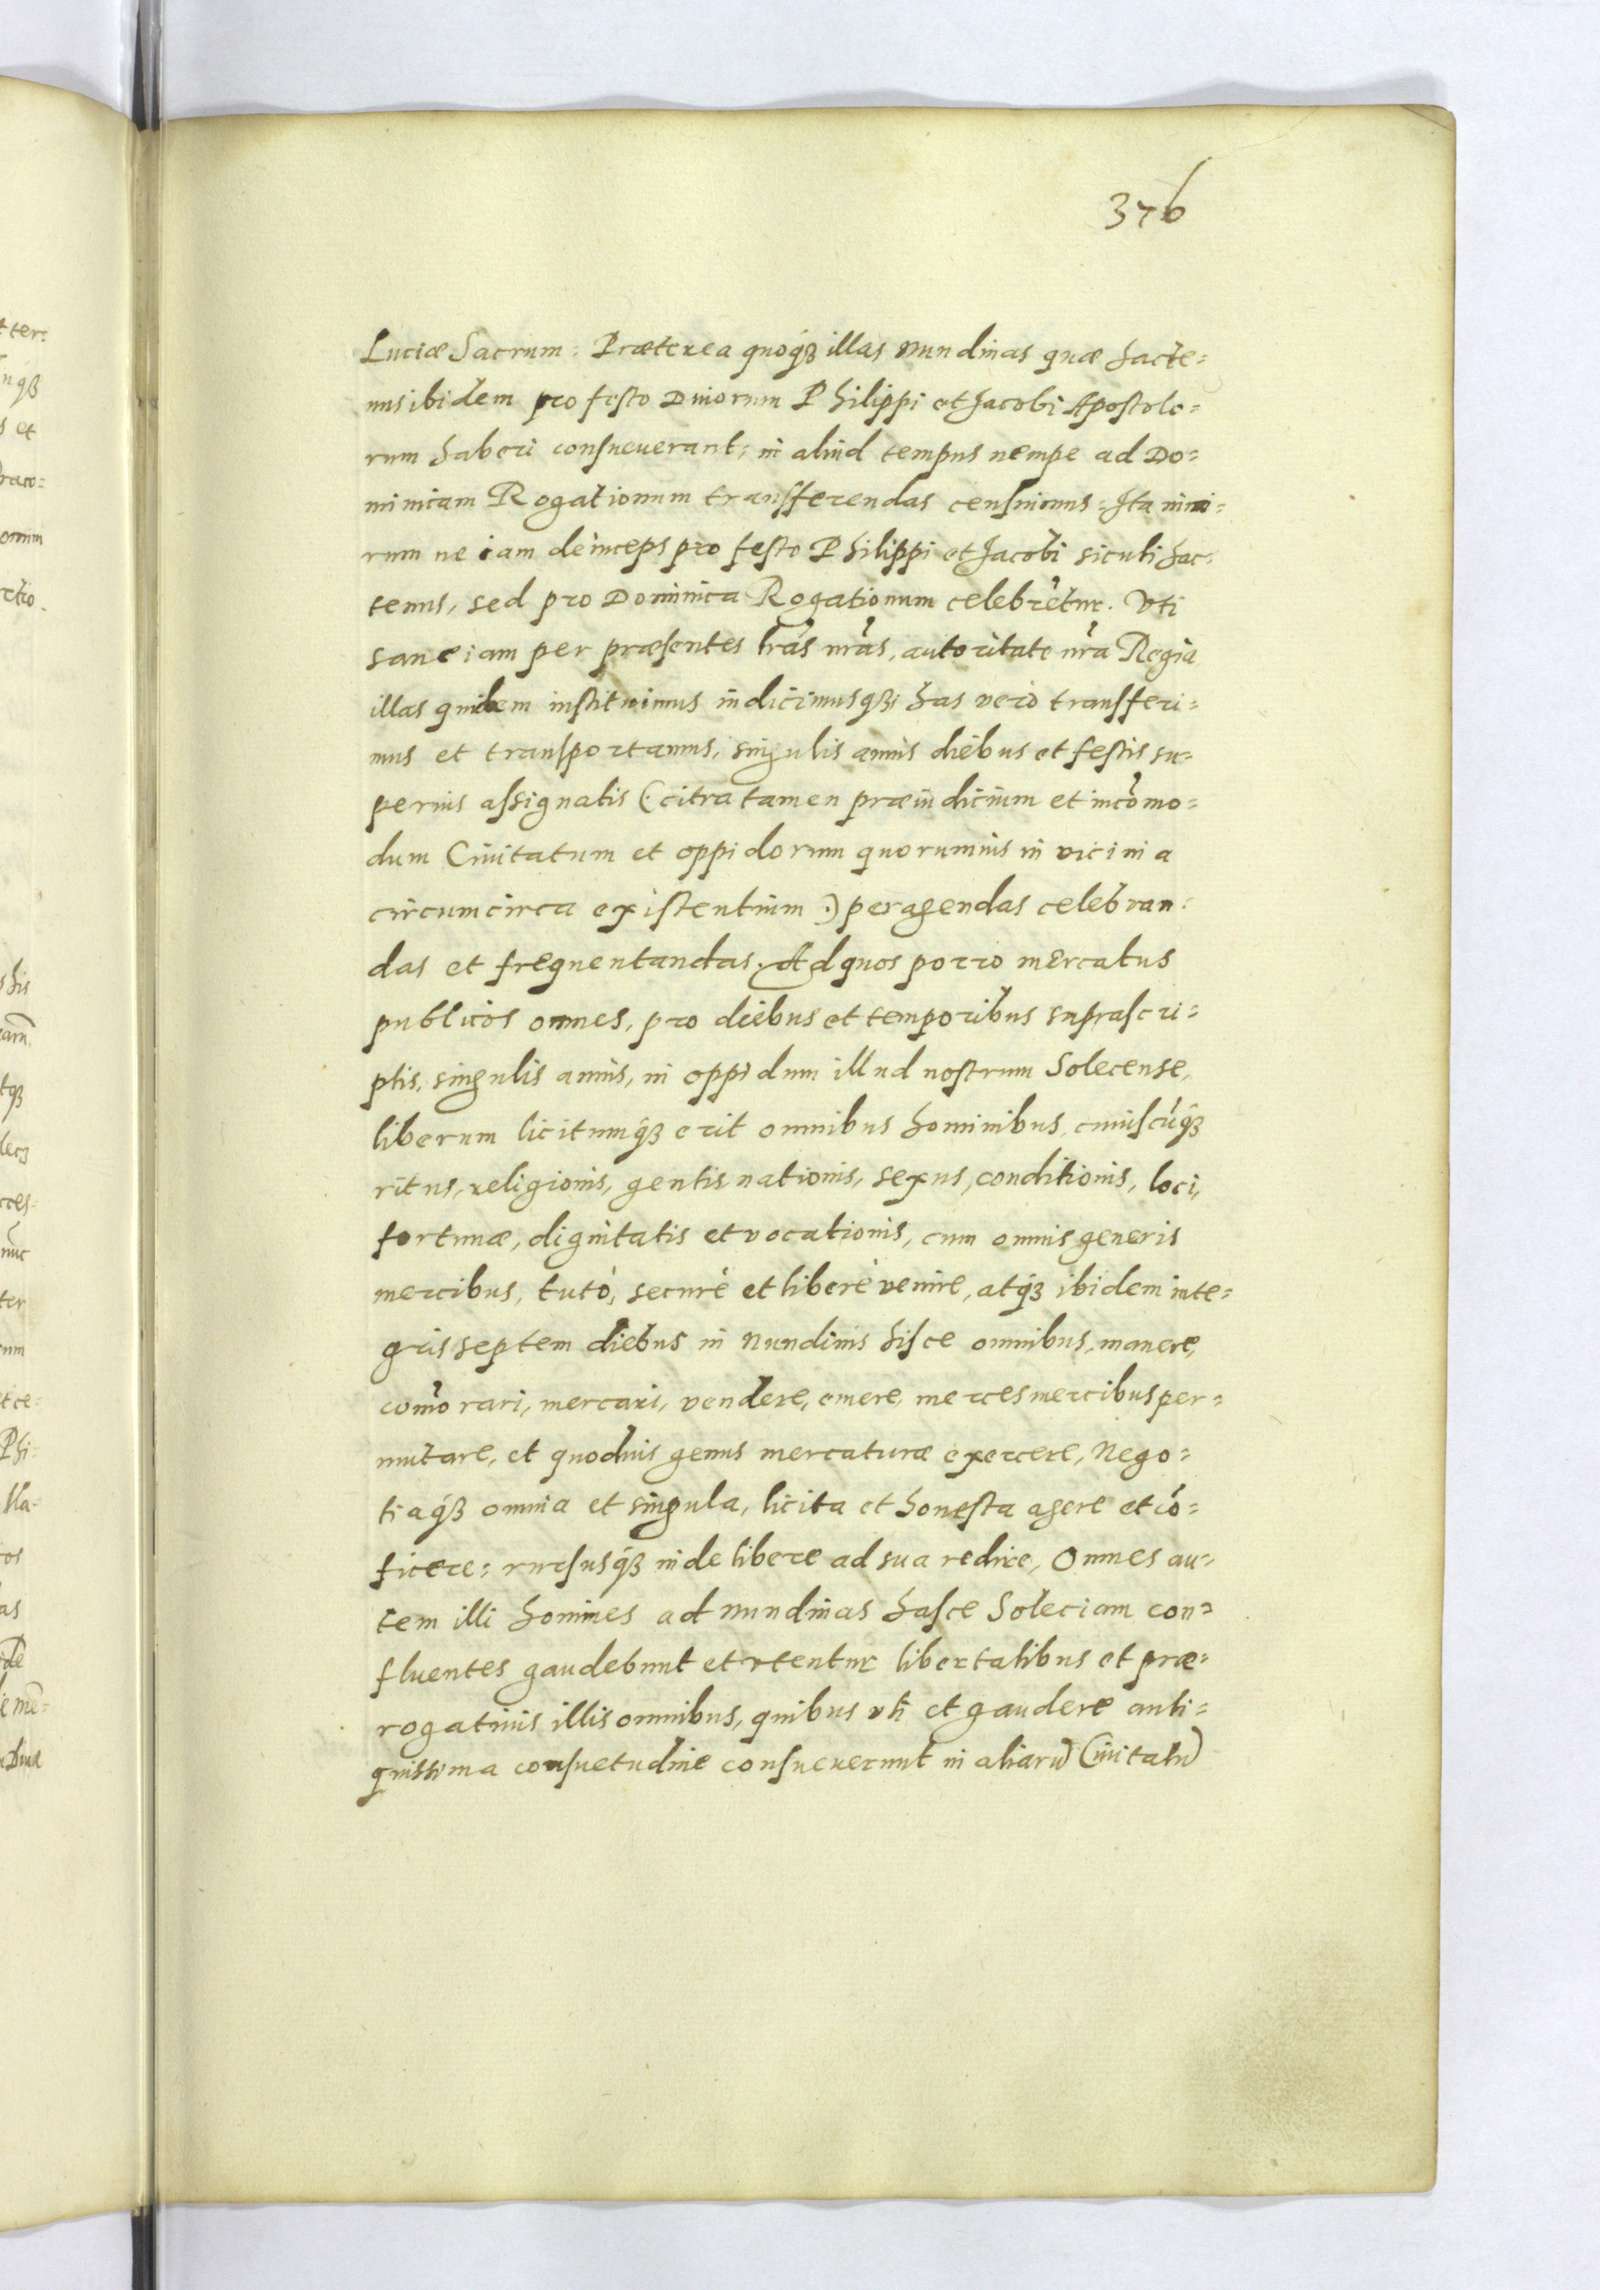 376
Luciæ Sacrum: Præterea quoq́ꝫ illas nundinas quæ hacte=
nus ibidem pro festo Diuorum Philippi et Jacobi Apostolo=
rum haberi consueuerant, in aliud tempus nempe ad Do=
minicam Rogationum transferendas censuimus: Ita nimi=
rum ne iam deinceps pro festo Philippi et Jacobi sicuti hac=
tenus, sed pro Dominica Rogationum celebretur. Vti
sane iam per præsentes lras nras, autoritate nra Regia
illas quidem instituimus indicimusqꝫ; has vero transferi=
mus et transportamus, singulis annis diebus et festis su=
perius assignatis (: citra tamen præiudicium et incomo=
dum Ciuitatum et oppidorum quorumuis in vicinia
circumcirca existentium :) peragendas celebran=
das et frequentandas. Ad quos porro mercatus
publicos omnes, pro diebus et temporibus suprascri=
ptis, singulis annis, in oppidum illud nostrum Solecense,
liberum licitumq́ꝫ erit omnibus hominibus, cuiuscuq́ꝫ
ritus, religionis, gentis nationis, sexus, conditionis, loci,
fortunæ, dignitatis et vocationis, cum omnis generis
mercibus, tutò, securè et liberè venire, atq́ꝫ ibidem inte=
gris septem diebus in nundinis hisce omnibus, manere,
comorari, mercari, vendere, emere, merces mercibus per=
mutare, et quoduis genus mercaturæ exercere, Nego=
tiaq́ꝫ omnia et singula, licita et honesta agere et cō=
ficere: rursusq́ꝫ inde libere ad sua redire, Omnes au=
tem illi homines ad nundinas hasce Soleciam con=
fluentes gaudebunt et vtentur libertatibus et præ=
rogatiuis illis omnibus, quibus vti et gaudere anti=
quissima consuetudine consueuerunt in aliarū Ciuitatū